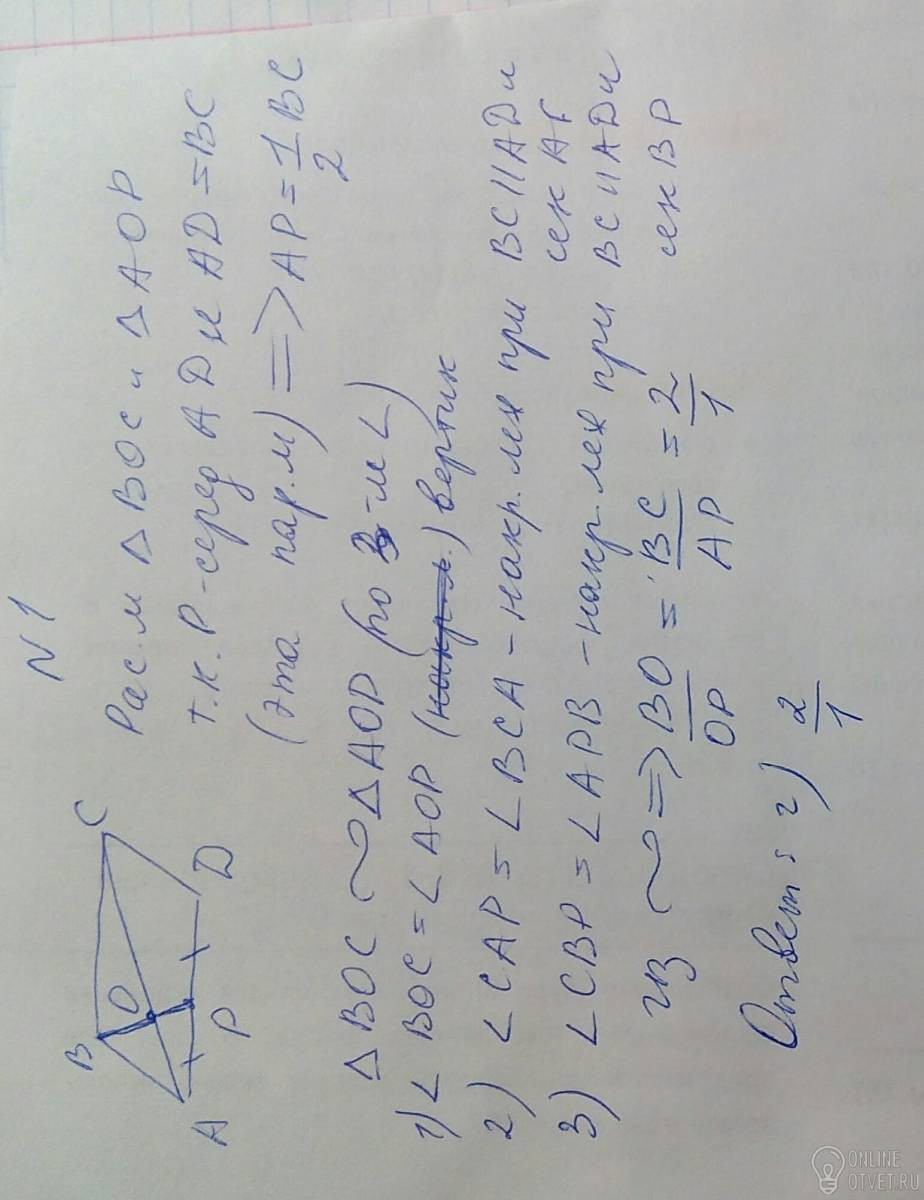 N 1
B
C
O
A
P
D
Рас.м Δ BOC и Δ AOP
т.к. P-серед AD и AD = BC
(эта пар.м) => AP = 1/2 BC
Δ BOC ~ Δ AOP (по 3-м ∠)
1) ∠ BOC = ∠ AOP (накр-л.) вертик
2) ∠ CAP = ∠ BCA - накр. леж при BC || AD и
сек AC
3) ∠ CBP = ∠ APB - накр. леж при BC || AD и
сек BP
из ~ => BO/OP = BC/AP = 2/1
Ответ: 2) 2/1
ONLINE
OTVET.RU